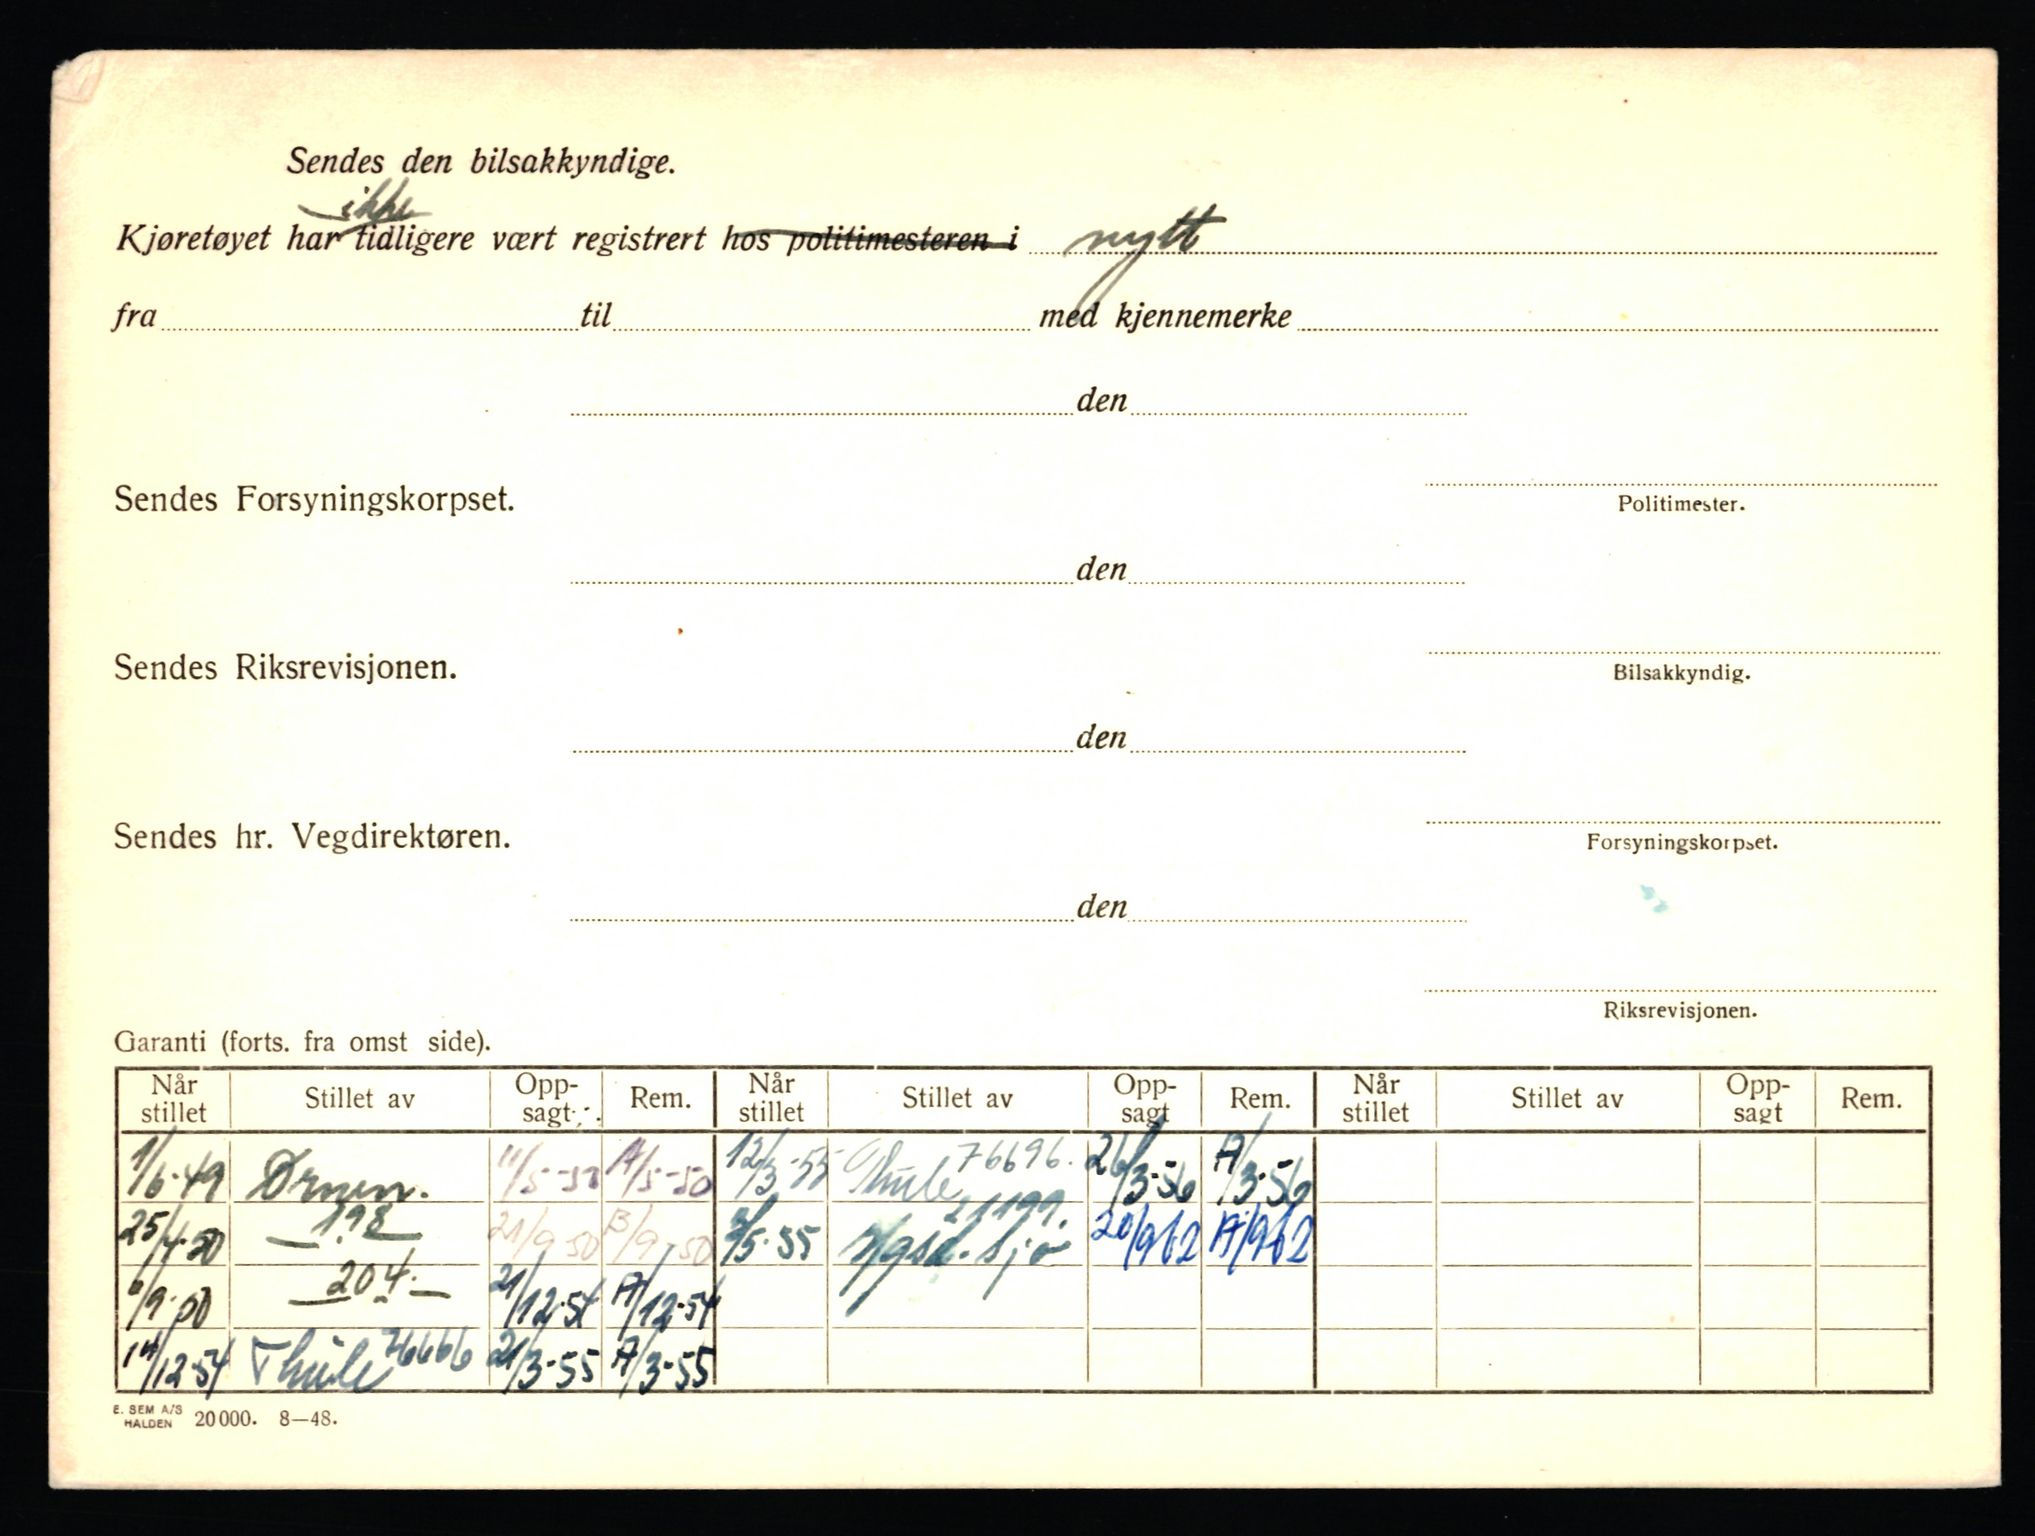 Sendes den bilsakkyndige.
ikke
Kjøretøyet har tidligere vært registrert hos politimesteren i nytt
fra til med kjennemerke
den
Sendes Forsyningskorpset.
Politimester.
den
Sendes Riksrevisjonen.
Bilsakkyndig.
den
Sendes hr. Vegdirektøren.
Forsyningskorpset.
den
Riksrevisjonen.
Garanti (forts. fra omst side).
Når stillet Stillet av Opp-sagt Rem. Når stillet Stillet av Opp-sagt Rem. Når stillet Stillet av Opp-sagt Rem.
1/6-49 Ørnen. 11/5-50 A/5-50 12/3-55 Thule 76696. 26/3-56 A/3-56
25/4-50 — 198 — 21/9-50 B/9-50 /5-55 21199. sjø 20/9 62 A/9 62
/9-50 — 204. — 21/12-54 A/12-54
14/12-54 Thule 76666 21/3-55 A/3-55
E. SEM A/S
HALDEN 20000. 8—48.